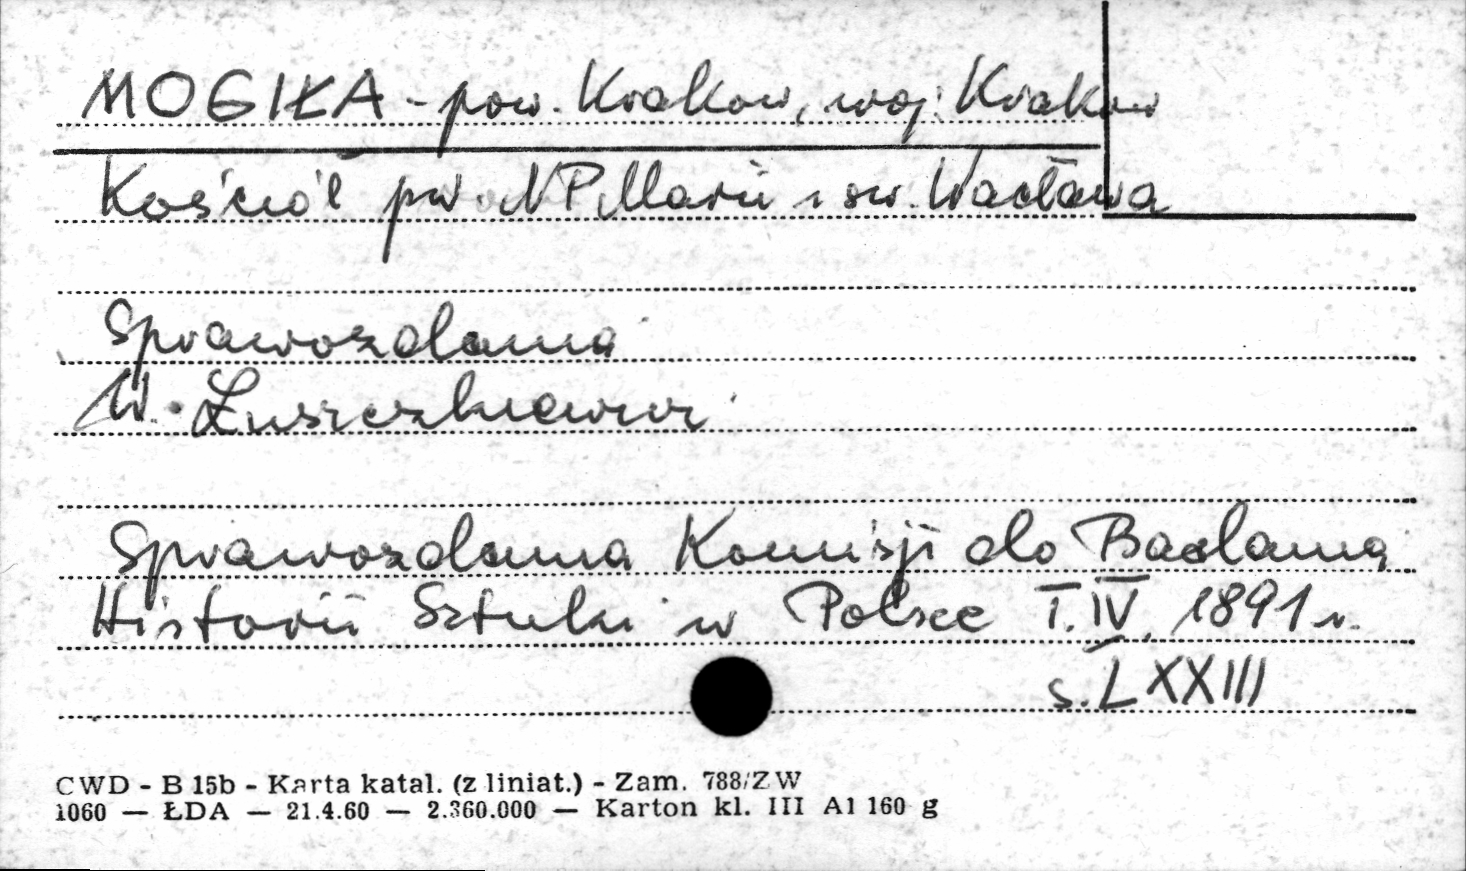 MOGIŁA - pow. Kraków, woj. Kraków
Kościół pw. NP Marii i św. Wacława
Sprawozdania
W. Łuszczkiewicz
Sprawozdania Komisji do Badania
Historii Sztuki w Polsce T. IV. 1891 r.
s. LXXIII
CWD - B 15b - Karta katal. (z liniat.) - Zam. 788/ZW
1060 — ŁDA — 21.4.60 — 2.360.000 — Karton kl. III A1 160 g